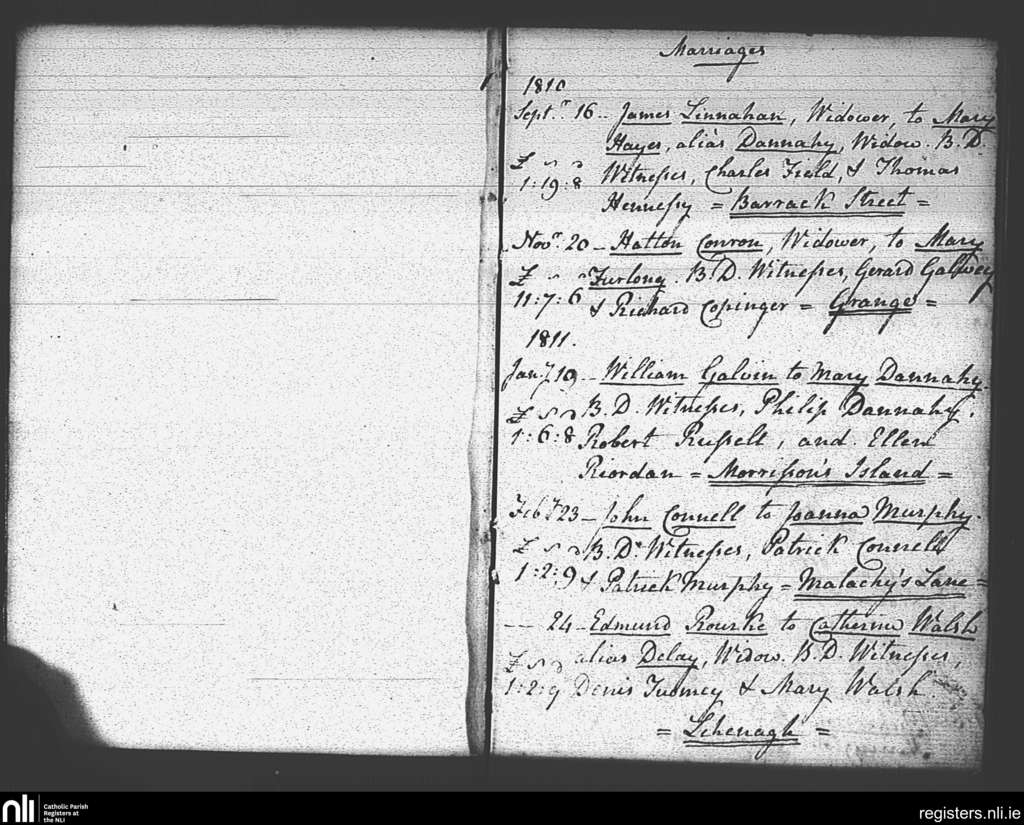 Marriages
1810
Septr. 16.. James Linnahan, Widower, to Mary
Hayes, alias Dannahy, Widow. B.D.
£ s d
1:19:8 Witnesses, Charles Field, & Thomas
Hennessy = Barrack Street =
Novr. 20 - Hatton Conron, Widower, to Mary
£ s d Furlong. B.D. Witnesses, Gerard Gallwey
11:7:6 & Richard Copinger = Grange =
1811.
Jany 19 - William Galvin to Mary Dannahy.
£ s d B.D. Witnesses, Philip Dannahy,
1:6:8 Robert Russell, and Ellen
Riordan = Morrisson's Island =
Feby 23 - John Connell to Joanna Murphy.
£ s d B.D. Witnesses, Patrick Connell
1:2:9 & Patrick Murphy = Malachy's Lane =
--- 24 - Edmund Rourke to Catherine Walsh
£ s d alias Delay, Widow. B.D. Witnesses,
1:2:9 Denis Tuomey & Mary Walsh
= Lehenagh =
nli
Catholic Parish
Registers at
the NLI
registers.nli.ie